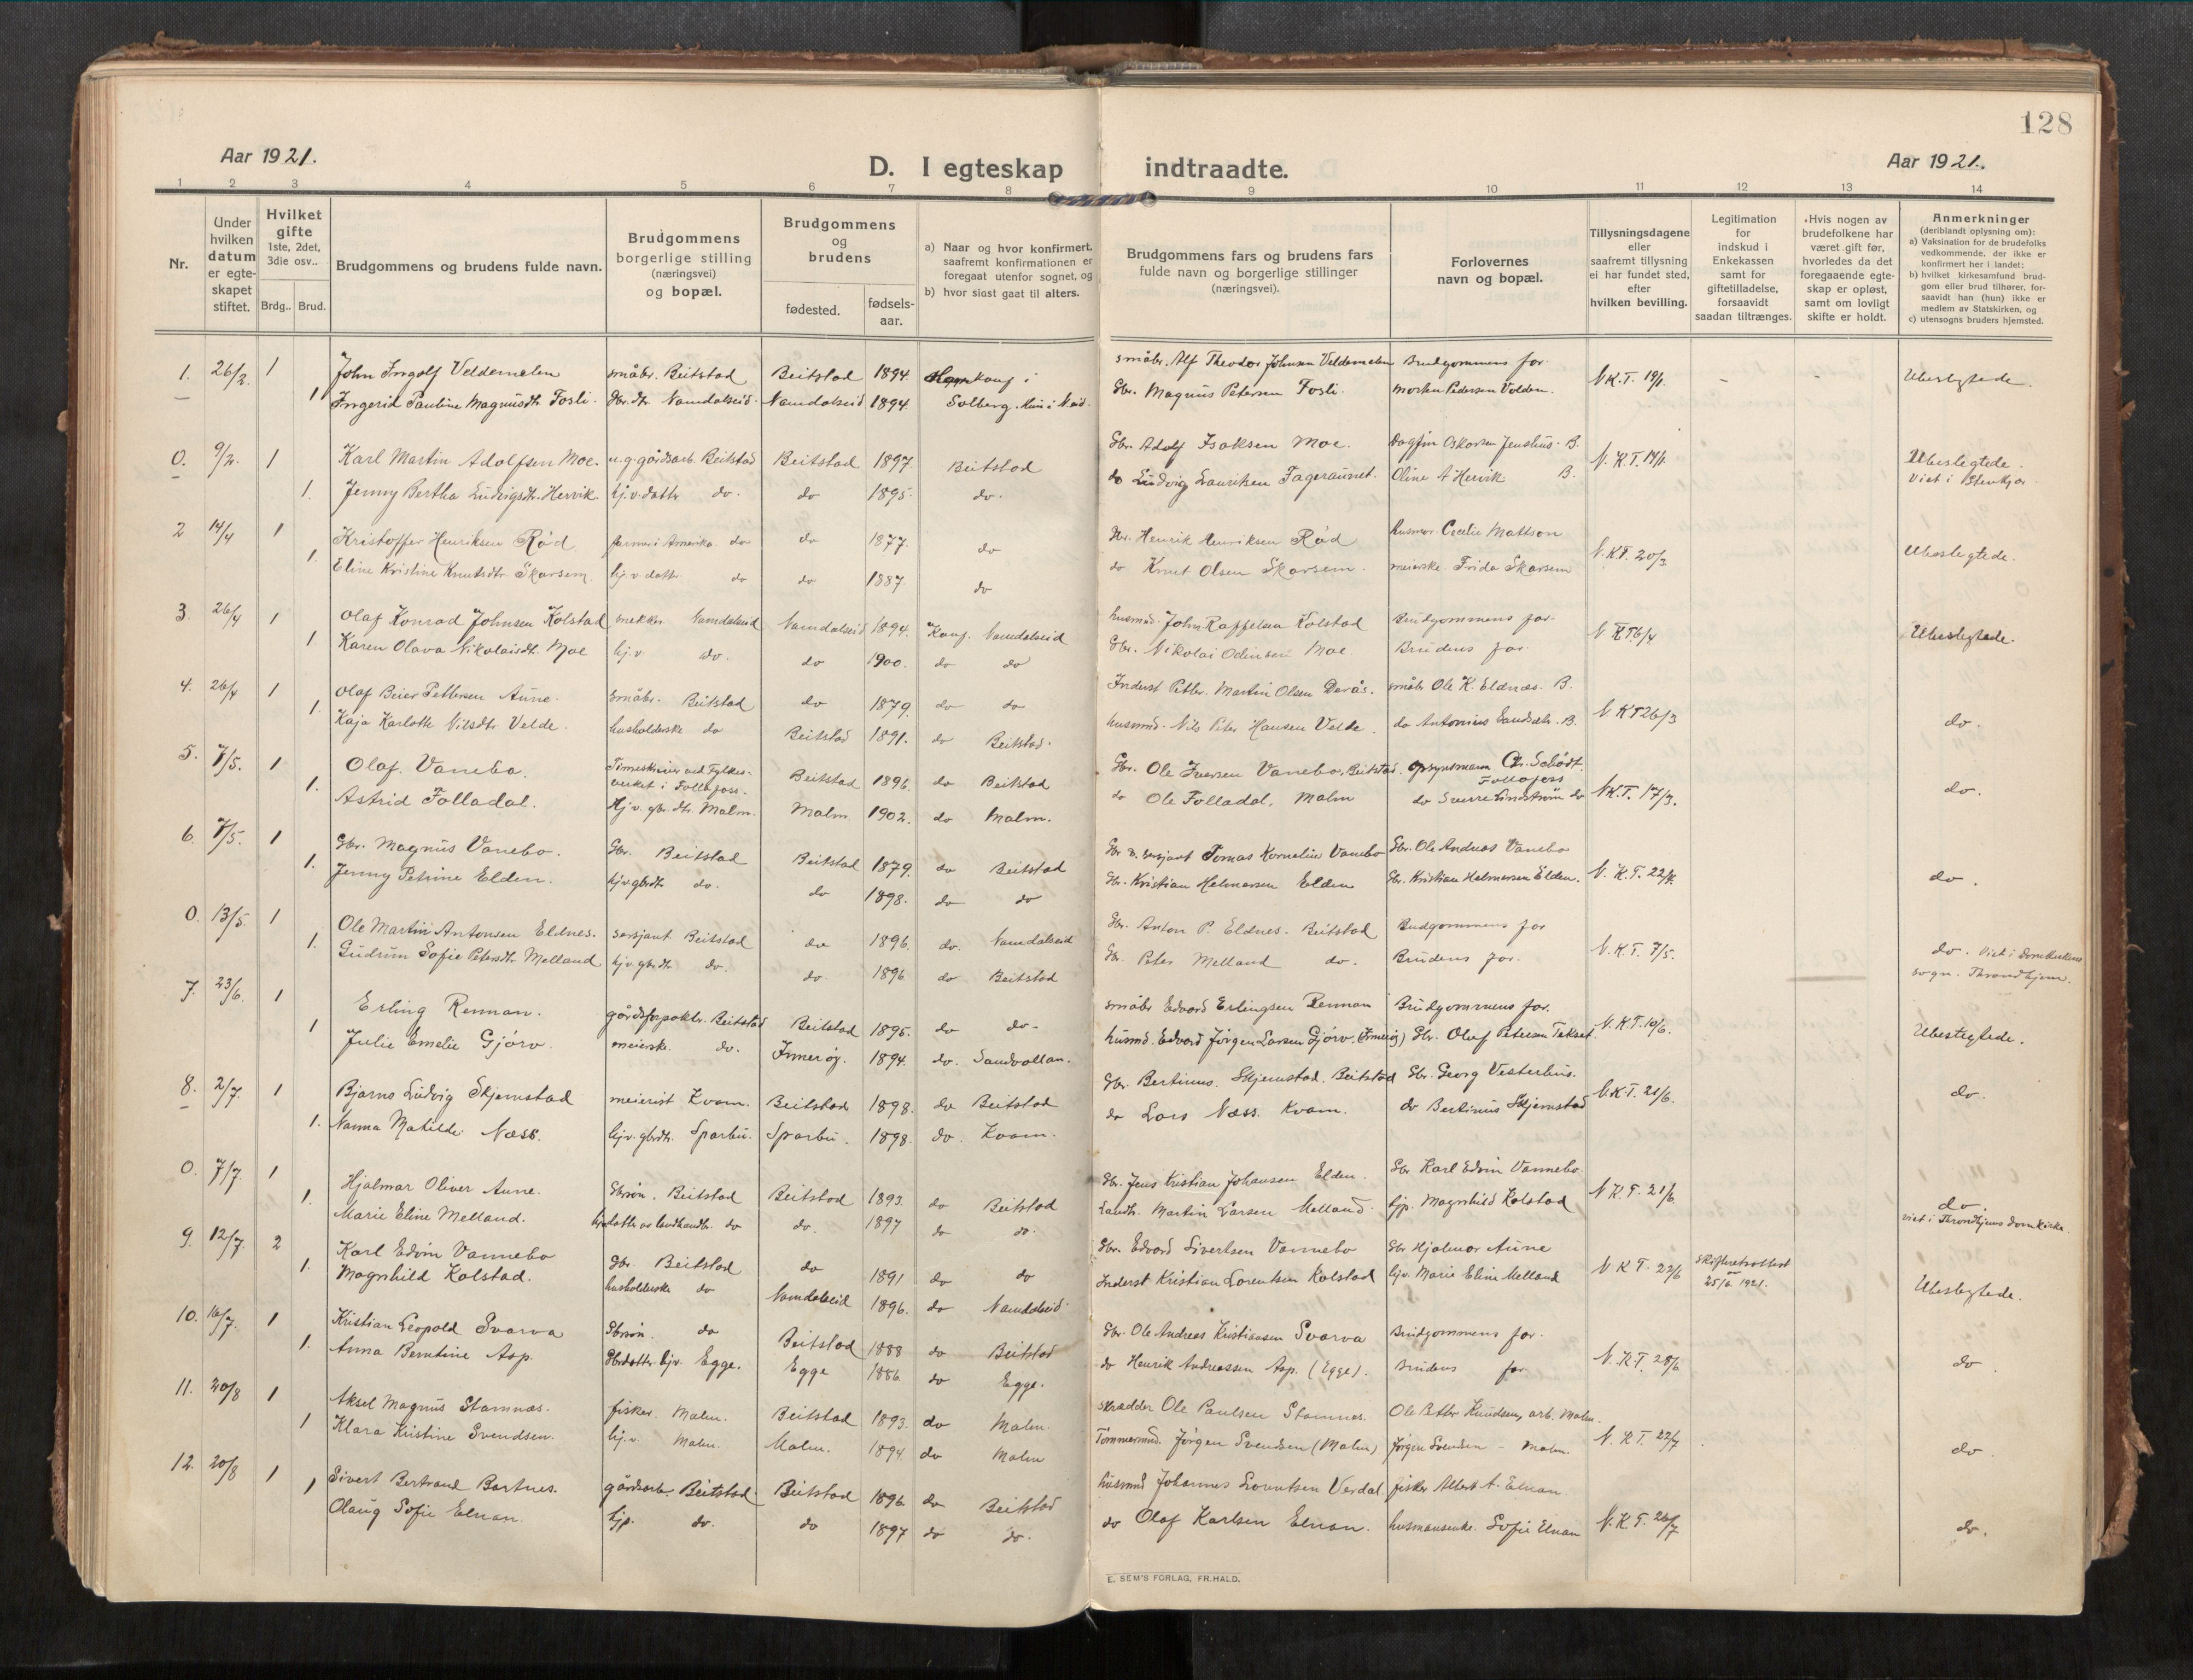 128
Aar 1921.
D. I egteskap indtraadte.
Aar 1921.
1 2 3 4 5 6 7 8 9 10 11 12 13 14
Nr.
Under hvilken datum er egte-skapet stiftet.
Hvilket gifte 1ste, 2det, 3die osv..
Brdg.. Brud.
Brudgommens og brudens fulde navn.
Brudgommens borgerlige stilling (næringsvei) og bopæl.
Brudgommens og brudens
fødested. fødsels-aar.
a) Naar og hvor konfirmert, saafremt konfirmationen er foregaat utenfor sognet, og
b) hvor sidst gaat til alters.
Brudgommens fars og brudens fars fulde navn og borgerlige stillinger (næringsvei).
Forlovernes navn og bopæl.
Tillysningsdagene eller saafremt tillysning ei har fundet sted, efter hvilken bevilling.
Legitimation for indskud i Enkekassen samt for giftetilladelse, forsaavidt saadan tiltrænges.
Hvis nogen av brudefolkene har været gift før, hvorledes da det foregaaende egte-skap er opløst, samt om lovligt skifte er holdt.
Anmerkninger (deriblandt oplysning om):
a) Vaksination for de brudefolks vedkommende, der ikke er konfirmert her i landet;
b) hvilket kirkesamfund brud-gom eller brud tilhører, for-saavidt han (hun) ikke er medlem av Statskirken, og
c) utensogns bruders hjemsted.
1. 26/2. 1 John Ingolf Veldemelen småbr. Beitstad Beitstad 1894. konf i småbr. Alf Theodor Johnsen Veldemelen Brudgommens far. N.K.T. 19/1. - - Ubeslegtede.
1 Ingerid Pauline Magnusdtr. Fosli. Gbr. dtr. Namdalseid. Namdalseid 1894. Solberg. Gbr. Magnus Petersen Fosli. Morten Pedersen Volden.
0. 9/2. 1 Karl Martin Adolfsen Moe. u.g. gårdsarb. Beitstad Beitstad 1897. Beitstad Gbr. Adolf Isaksen Moe. Dagfin Oskarsen Jenshus. B. N.K.T. 14/1. Ubeslegtede.
1. Jenny Bertha Ludvigsdtr. Hervik. hj.v. datter do. do 1895. do. do Ludvig Lauritsen Fageraunet. Oline A Hervik B. Viet i Stenkjær
2 14/4 1 Kristoffer Henriksen Rød farmer i Amerika do do 1877. do Gbr. Henrik Henriksen Rød husmor Cecelie Mattson N.K.T. 20/3 Ubeslegtede.
1. Eline Kristine Knutsdtr Skarsem. hj.v. datter do do 1887. do do Knut Olsen Skarsem. meierske Frida Skarsem
3. 26/4 1 Olaf Konrad Johnsen Kolstad snekker Namdalseid Namdalseid 1894. Konf. Namdalseid husmd. John Raffelsen Kolstad Brudgommens far. N.K.T. 6/4 Ubeslegtede.
1. Karen Olava Nikolaisdtr. Moe hj.v. do. do 1900. do do Gbr. Nikolai Odinsen Moe Brudens far.
4. 26/4 1 Olaf Beier Pettersen Aune. småbr. Beitstad do 1879. do do Inderst Petter Martin Olsen Derås. småbr Ole K. Eldnæs. B. N.K.T 26/3 do.
1. Kaja Karlotte Nilsdtr Velde. husholderske do Beitstad 1891. do Beitstad. husmd. Nils Peter Hansen Velde. do Antonius B.
5. 7/5. 1 Olaf Vanebo. Timeskriver ved Fylkes-verket i Follafoss. Beitstad 1896. do Beitstad Gbr. Ole Iversen Vanebo, Beitstad. opsynsmann Chr. Schødt. Follafoss N.K.T. 17/3. do.
1. Astrid Folladal. Hj.v. gbr. dtr. Malm. Malm 1902. do Malm. do Ole Folladal, Malm do Sverre Lindstrøm do
6. 7/5. 1 Gbr. Magnus Vanebo. Gbr. Beitstad Beitstad 1879. do Beitstad Gbr. & sersjant Tomas Kornelius Vanebo Gbr. Ole Andreas Vanebo N.K.T. 22/4. do.
1. Jenny Petrine Elden. hjv gbrdtr do. do 1898. do do Gbr. Kristian Helmersen Elden Gbr. Kristian Helmersen Elden.
0. 13/5. 1 Ole Martin Antonsen Eldnes. sersjant Beitstad do 1896. do. Namdalseid Gbr. Anton P. Eldnes. Beitstad Brudgommens far N.K.T. 7/5. do. Viet i Domkirkens
1. Gudrun Sofie Petersdtr. Melland hjv. gbrdtr. do. do. 1896 do Beitstad Gbr. Peter Melland do. Brudens far. sogn. Throndhjem.
7. 23/6. 1 Erling Rennan. gårdsforpakter. Beitstad Beitstad 1895. do do. småbr Edvard Erlingsen Rennan Brudgommens far. N.K.T. 10/6. Ubeslegtede.
1 Julie Emelie Gjørv. meiersk. do. Inderøy. 1894. do. Sandvollan. husmd. Edvard Jørgen Larsen Gjørv. (Inderøy) Gbr. Oluf Petersen Tekset
8. 2/7. 1 Bjarne Ludvig Skjemstad meierist Kvam. Beitstad 1898. do Beitstad Gbr. Bertinus. Skjemstad. Beitstad Gbr. Georg Vesterhus. N.K.T. 21/6. do.
1. Nanna Matilde Næss. hjv. gbrdtr. Sparbu. Sparbu. 1898. do. Kvam. do Lars Næss. Kvam. do Bertinus Skjemstad
0. 7/7. 1 Hjalmar Oliver Aune. Gbrsøn. Beitstad Beitstad 1893. do Beitstad Gbr. Jens Kristian Johansen Elden. Gbr Karl Edvin Vannebo. N.K.T. 21/6. do.
1. Marie Eline Melland. hj.datter av landhandlr. do do. 1897 do do. Landh. Martin Larsen Melland. hjp. Magnhild Kolstad viet i Throndhjems domkirke.
9. 12/7. 2 Karl Edvin Vannebo Gbr. Beitstad do 1891 do do Gbr. Edvard Sivertsen Vannebo Gbr Hjalmar Aune N.K.T. 22/6 Skifteretsattest av 25/6 1921. Ubeslegtede.
1. Magnhild Kolstad. husholderske do Namdalseid 1896. do Namdalseid. Inderst Kristian Lorentsen Kolstad hjv. Marie Eline Melland
10. 16/7. 1 Kristian Leopold Svarva Gbrsøn. do Beitstad 1888 do Beitstad Gbr. Ole Andreas Kristiansen Svarva Brudgommens far. N.K.T. 28/6 do
1. Anna Berntine Asp. Gbrdatter hjv. Egge. Egge 1886 do Egge. do Henrik Andreassen Asp. (Egge). Brudens far.
11. 20/8 1 Aksel Magnus Stamnæs. fisker. Malm. Beitstad 1893. do Malm. skrædder Ole Paulsen Stamnes. Ole Petter Knudsen, arb. Malm. N.K.T. 22/7 do
1 Klara Kristine Svendsen. hj.v. Malm. Malm. 1894. do Malm Tømmermd. Jørgen Svendsen (Malm) Jørgen Svendsen - Malm.
12. 20/8 1 Sivert Bertrand Bartnes. gårdsarb. Beitstad. Beitstad 1896 do Beitstad husmnd Johannes Lorentsen Verdal. fisker Albert A. Elnan N.K.T. 26/7 do.
1 Olaug Sofie Elnan. hjp. do. do 1897 do do. do Olaf Karlsen Elnan. husmansenke. Sofie Elnan
E. SEM'S FORLAG, FR.HALD.